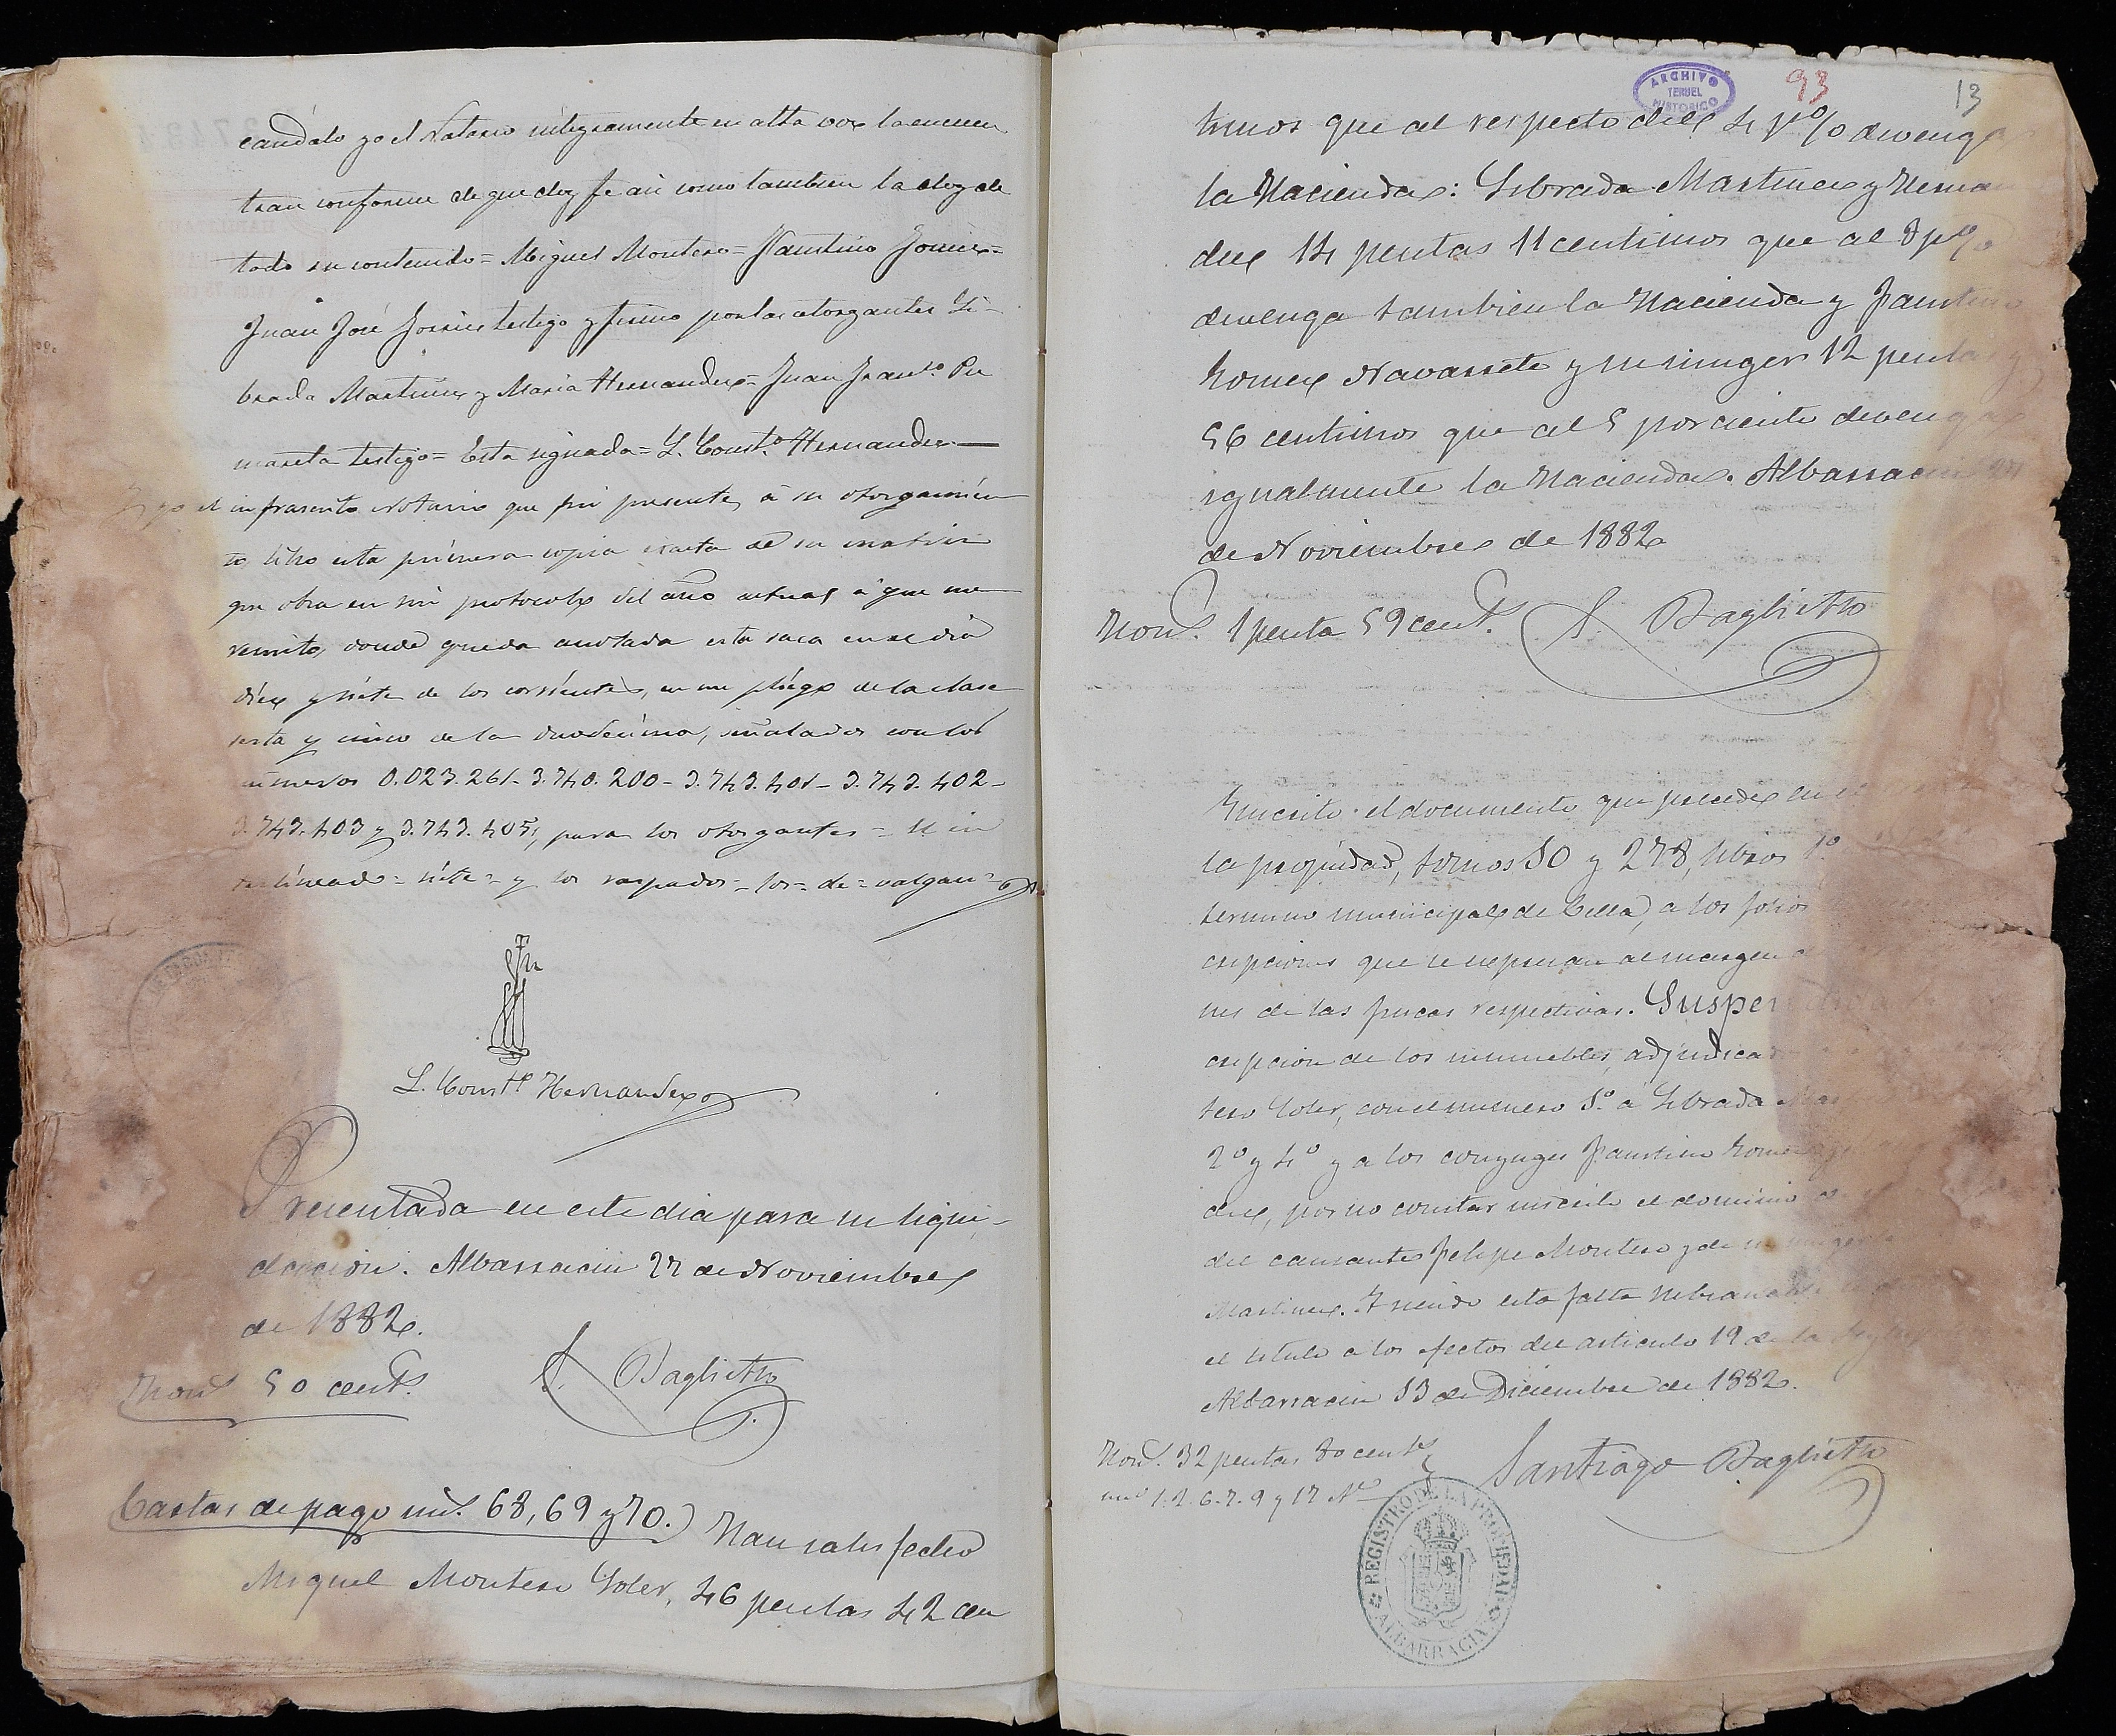 candolo yo el Notario integramente en alta voz la encuen
tran conforme de que doy fe asi como tambien la doy de
todo su contenido = Miguel Montero = Faustino Gomez =
Juan José Gomez testigo y firmo por las otorgantes Li-
brada Martinez y Maria Hernandez = Juan Franco. Pu
maseta testigo = Esta signada = L. Const.º Hernandez —
Y yo el infrascrito Notario que fui presente, á su otorgamien
to, libro esta primera copia exacta de su matriz
que obra en mi protocolo del año actual á que me
remito, donde queda anotada esta saca en su dia
diez y siete de los corrientes, en un pliego de la clase
sesta y cinco de la duodecima, señalados con los
numeros 0.023.261 - 3.740.200 - 3.743.401 - 3.743.402 -
3.743.403 y 3.743.405, para los otorgantes = El in
terlineado = siete = y los raspados = los = de = valgan =
L. Const.º Hernandez
Presentada en este dia para su liqui-
dacion. Albarracin 27 de Noviembre
de 1882.
Hon.s 50 cent.s S. Baglietto
Cartas de pago nu.s 68, 69 y 70.) Han satisfecho
Miguel Montero Soler, 46 pesetas 42 cen
ARCHIVO HISTORICO TERUEL
93
13
timos que al respecto del 4 p% devenga
la Hacienda: Librada Martinez y Hernan
dez 14 pesetas 11 centimos que al 8 p%
devenga tambien la Hacienda y Faustino
Gomez Navarrete y su muger 12 pesetas y
56 centimos que al 5 por ciento devenga
igualmente la Hacienda. Albarracin 27
de Noviembre de 1882
Hon.s 1 peseta 59 cent.s S. Baglietto
Inscrito el documento que precede en el
la propiedad, tomos 50 y 278, libros 1.º
termino municipal de Cella, a los folios
cripciones que se espresan al margen de
nes de las fincas respectivas. Suspendida
cripcion de los inmuebles, adjudicad
tero Soler, con el numero 5.º a Librada Mar
2.º y 4.º y a los conyuges Faustino Gomez y
dez, por no constar inscrito el dominio
del causante Felipe Montero y de su muger
Martinez. Y siendo esta falta subsanable
el titulo a los efectos del articulo 19 de la Ley
Albarracin 13 de Diciembre de 1882.
Hon.s 32 pesetas 80 cent.s Santiago Baglietto
nu.s 1. 2. 6. 7. 9 y 17 A.l
REGISTRO DE LA PROPIEDAD
ALBARRACIN